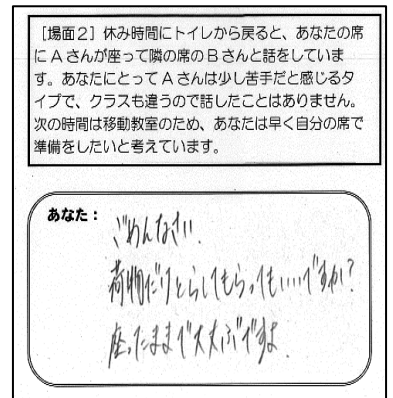 ［場面２］休み時間にトイレから戻ると、あなたの席
にＡさんが座って隣の席のＢさんと話をしていま
す。あなたにとってＡさんは少し苦手だと感じるタ
イプで、クラスも違うので話したことはありません。
次の時間は移動教室のため、あなたは早く自分の席で
準備をしたいと考えています。
あなた：
ごめんなさい.
荷物だけとらしてもらってもいい…ですか?
座ったままで大丈ぶですよ.